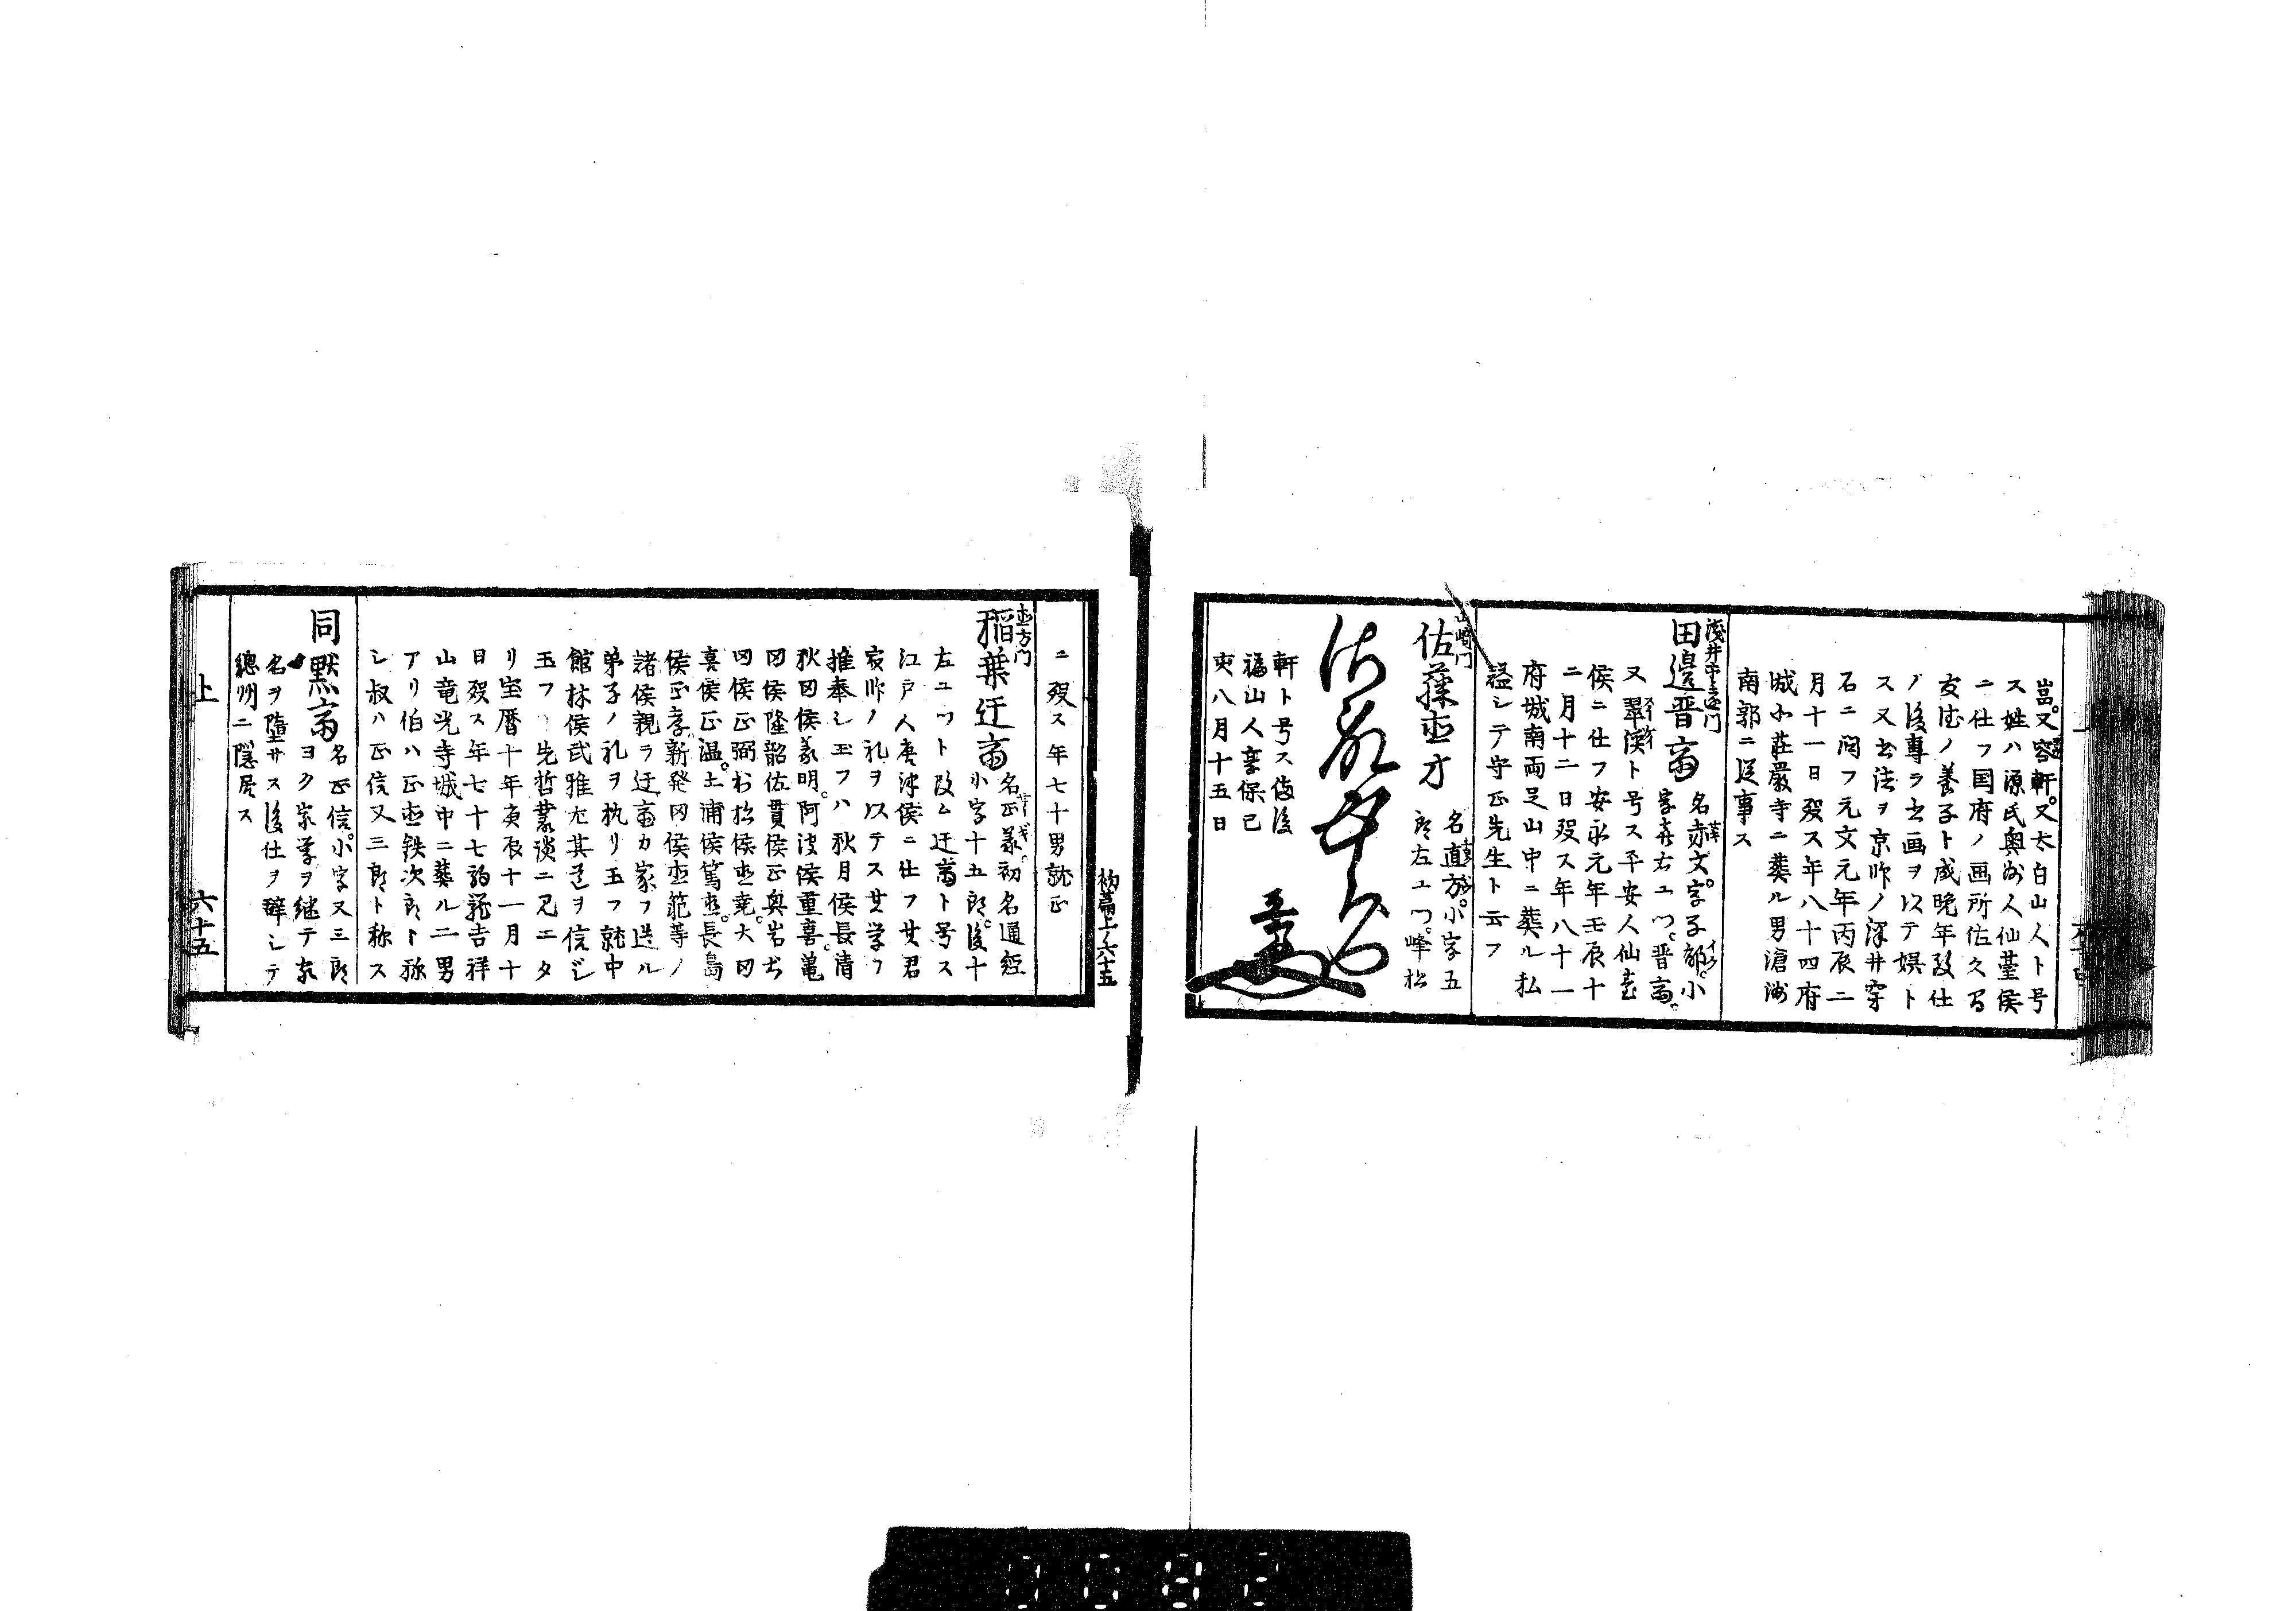 嵓。又容軒。又太白山人ト号
ス姓ハ源氏奥州人仙臺侯
ニ仕フ国府ノ画所佐久間
友徳ノ養子ト成晩年致仕
ノ後專ラ書画ヲ以テ娯ト
ス又書法ヲ京師ノ深井穿
石ニ問フ元文元年丙辰二
月十一日歿ス年八十四府
城小荘嚴寺ニ葬ル男滄洲
南郭ニ從事ス
田邉晋斎
名希文。字子郁。小
字喜右エ門。晋斎。
又翠渓ト号ス平安人仙臺
侯ニ仕フ安永元年壬辰十
二月十二日歿ス年八十一
府城南両足山中ニ葬ル私
謚シテ守正先生ト云フ
山崎門
佐藤直方
名直方。小字五
郎左エ門。峰松
軒ト号ス備後
福山人享保己
亥八月十五日
二歿ス年七十男就正
初篇上ノ六十五
直方門
稲葉迂斎
名正義初名通經
小字十五郎。後十
左エ門ト改ム迂斎ト号ス
江戸人唐津侯ニ仕フ其君
家師ノ礼ヲ以テス其学ヲ
推奉シ玉フハ秋月侯長清
狄田侯義明。阿波侯重喜。亀
田侯隆韶佐貫侯正奥岩
田侯正弼村松侯直堯。大田
喜侯正温。土浦侯篤直。長島
侯正孝新発田侯直範等ノ
諸侯親ラ迂斎カ家ヲ造ル
弟子ノ礼ヲ執リ玉フ就中
館林侯武雅尤其道ヲ信ジ
玉フ先哲叢談ニ見エタ
リ宝暦十年庚辰十一月十
日歿ス年七十七駒籠吉祥
山竜光寺城中ニ葬ル二男
アリ伯ハ正直鉄次郎ト称
シ叔ハ正信又三郎ト称ス
同黙斎
名正信。小字又三郎
ヨク家学ヲ継テ家
名ヲ墮サス後仕ヲ辭シテ
總州ニ隱居ス
上
六十五